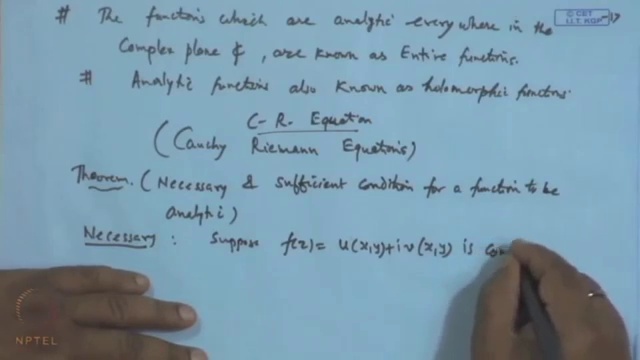 # The functions which are analytic everywhere in the
Complex plane ₵, are known as Entire functions.
# Analytic functions also known as holomorphic functions
C-R. Equation
(Cauchy Riemann Equations)
Theorem. (Necessary & sufficient condition for a function to be
analytic)
Necessary : Suppose f(z) = u(x,y)+iv(x,y) is con
© CET
I.I.T. KGP
NPTEL